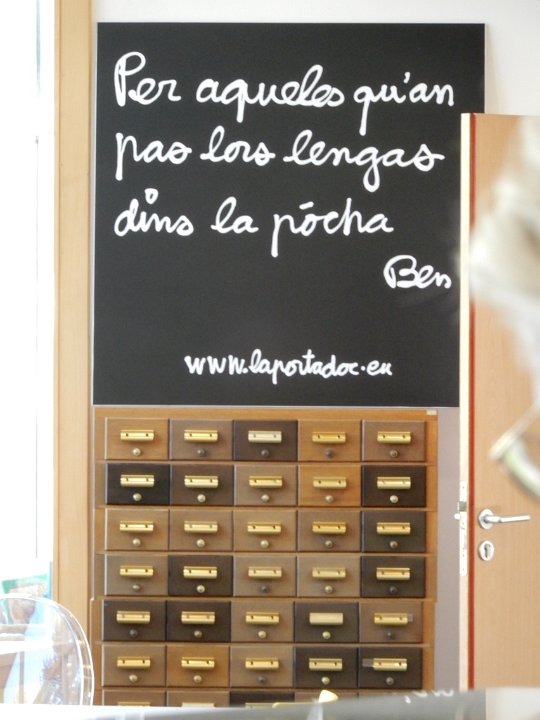 Per aqueles qu'an
pas lors lengas
dins la pòcha
Ben
www.laportadoc.eu